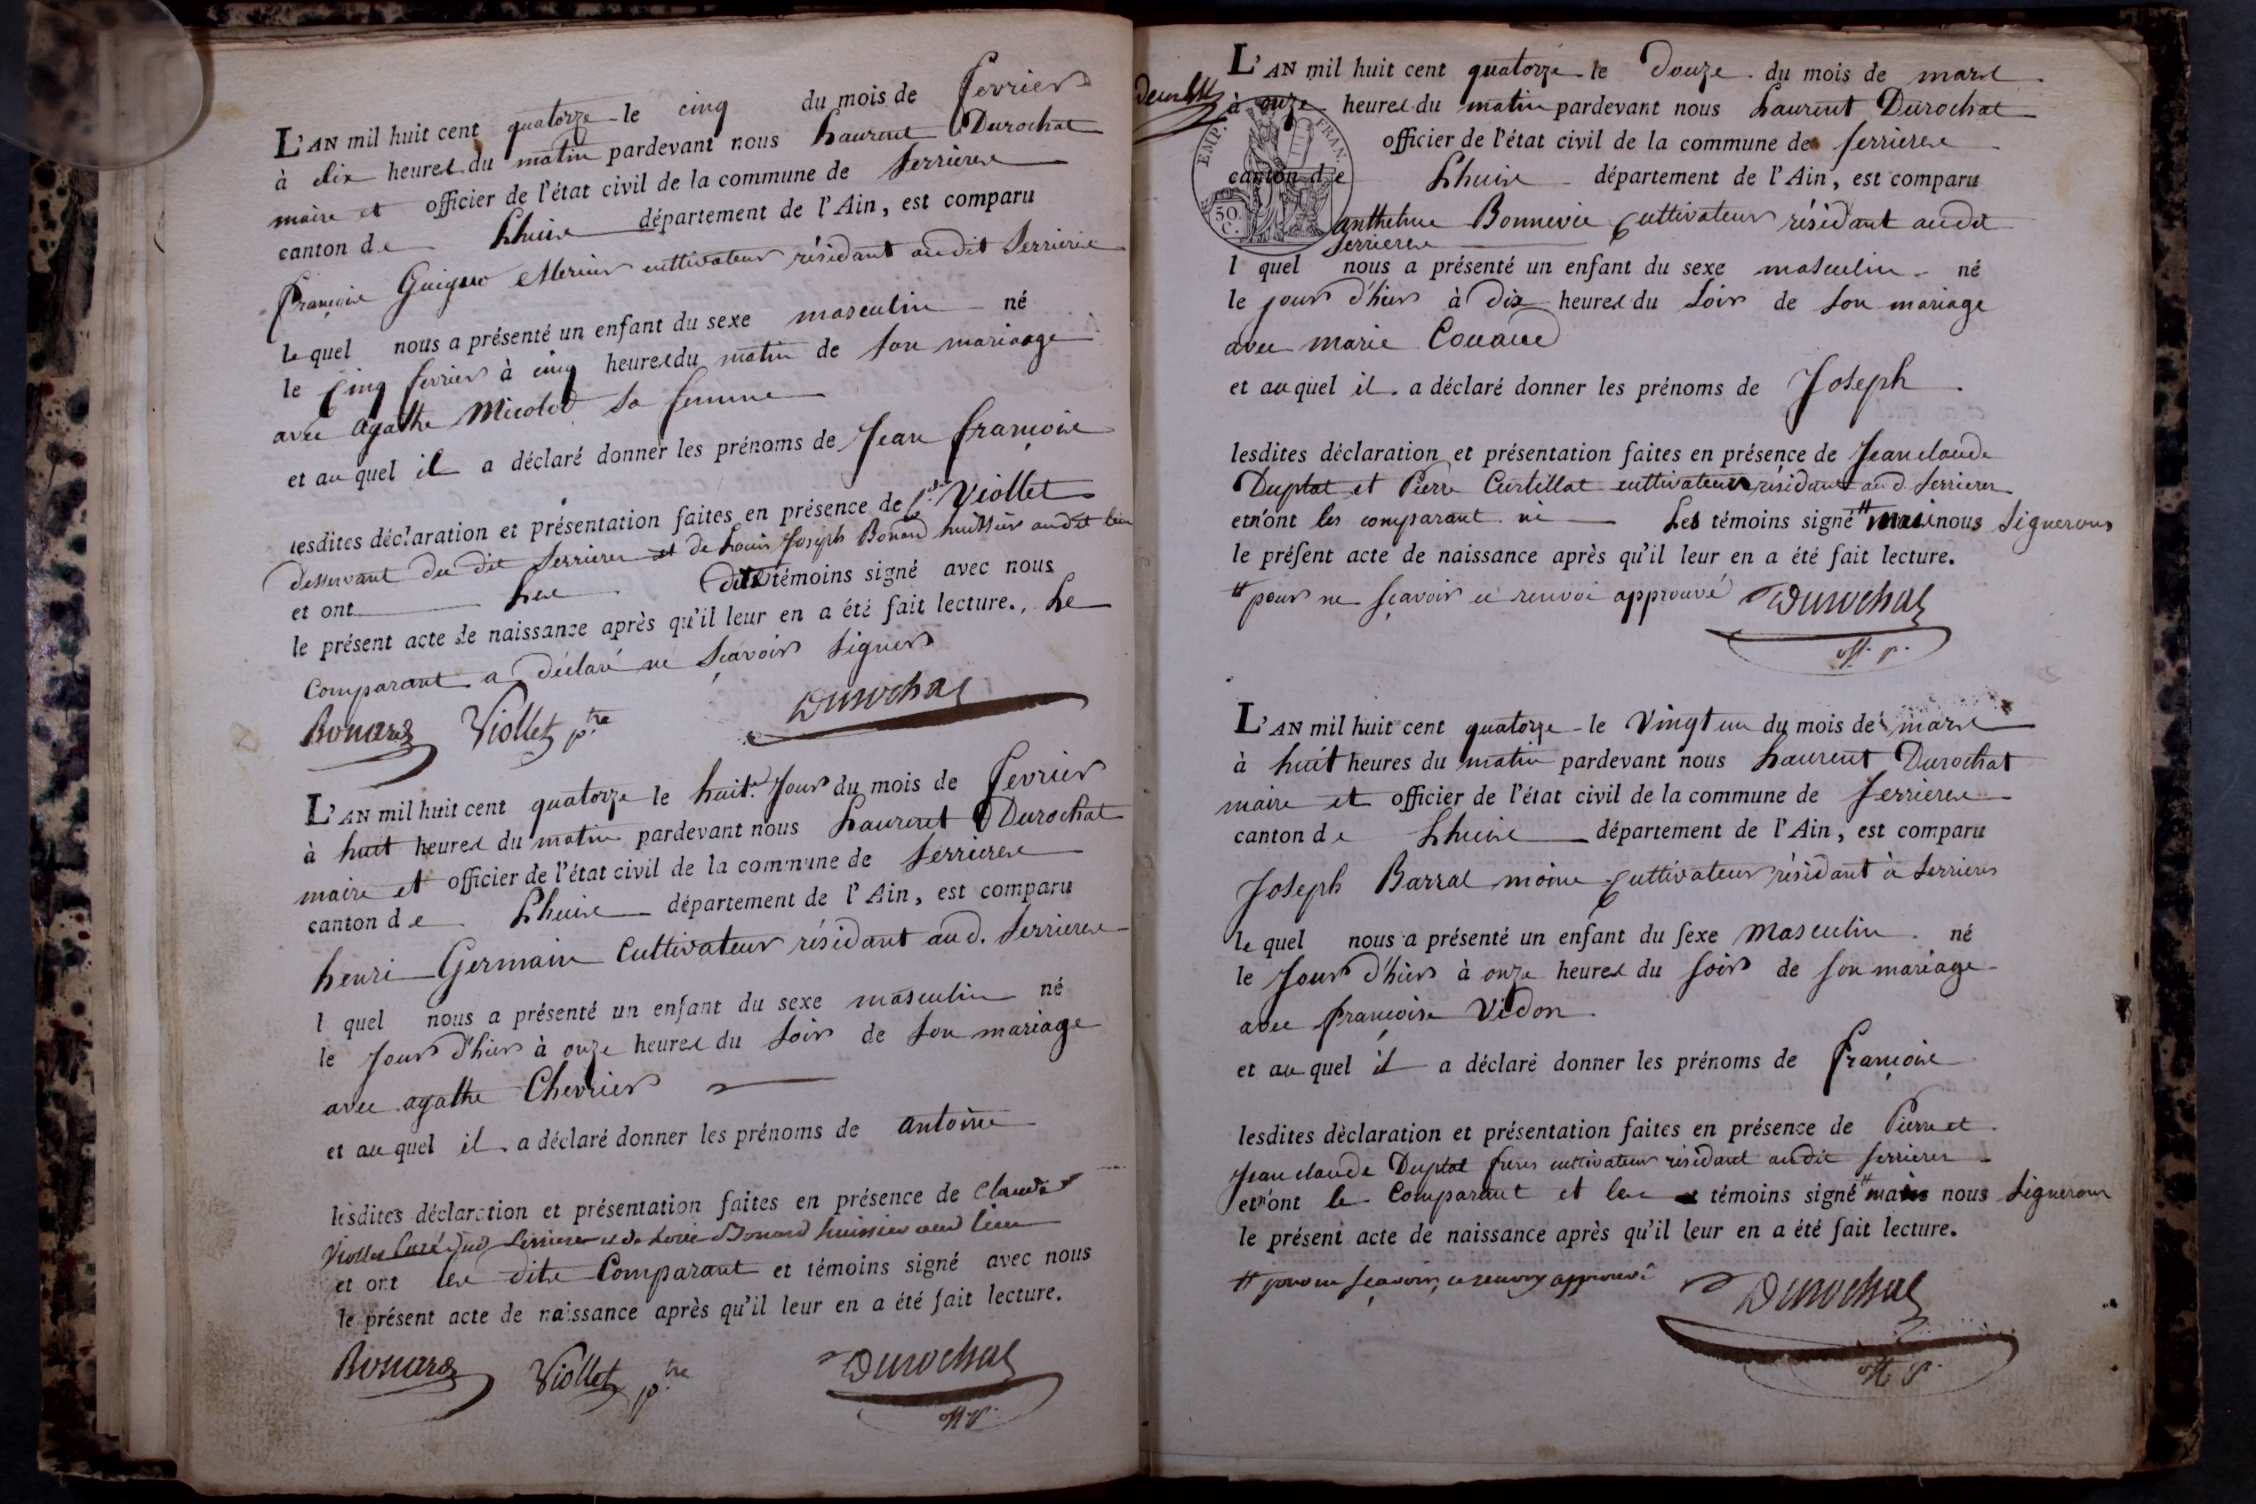 L'AN mil huit cent quatorze le cinq du mois de fevrier
à dix heures du matin pardevant nous Laurent Durochat
maire et officier de l'état civil de la commune de Serrieres
canton de Lhuis département de l'Ain, est comparu
françois Guigue Mercier cultivateur résidant audit Serrieres
le quel nous a présenté un enfant du sexe masculin né
le cinq fevrier à cinq heures du matin de son mariaage
avec agathe Micolod sa femme
et au quel il a déclaré donner les prénoms de Jean françois
lesdites déclaration et présentation faites en présence de Viollet
desservant du dit Serrieres et de Louis Joseph Bonard huissier audit lieu
et ont les dits témoins signé avec nous
le présent acte de naissance après qu'il leur en a été fait lecture., Le
Comparant a déclaré ne sçavoir signer
Bonard Viollet p.tre Durochat
L'AN mil huit cent quatorze le huit.e Jour du mois de fevrier
à huit heures du matin pardevant nous Laurent Durochat
maire et officier de l'état civil de la commune de Serrieres
canton de Lhuis département de l'Ain, est comparu
henri Germain Cultivateur résidant aud. Serrieres
l quel nous a présenté un enfant du sexe masculin né
le Jour d'hier à onze heures du soir de son mariage
avec agathe Chevrier
et au quel il a déclaré donner les prénoms de antoine
lesdites déclaration et présentation faites en présence de Claude
Viollet Curé dud Serrieres et de Louis Bonard huissier aud lieu
et ont les dits Comparant et témoins signé avec nous
le présent acte de naissance après qu'il leur en a été fait lecture.
Bonard Viollet p.tre Durochat
off. p.
L'AN mil huit cent quatorze le Douze du mois de mars
à onze heures du matin pardevant nous Laurent Durochat
officier de l'état civil de la commune de Serrieres
EMP. FRAN.
canton de Lhuis département de l'Ain, est comparu
50. C.
anthelme Bonnevie Cultivateur résidant audit
Serrieres
l quel nous a présenté un enfant du sexe masculin né
le jour d'hier à dix heures du Soir de son mariage
avec marie Couard
et au quel il a déclaré donner les prénoms de Joseph
lesdites déclaration et présentation faites en présence de Jean claude
Duplat et Pierre Curtillat cultivateurs résidant aud. Serrieres
et n'ont les comparant ni Les témoins signé # mais nous signerons
le présent acte de naissance après qu'il leur en a été fait lecture.
# pour ne sçavoir ce renvoi approuvé Durochat
off. p.
L'AN mil huit cent quatorze le Vingt un du mois de mars
à huit heures du matin pardevant nous Laurent Durochat
maire et officier de l'état civil de la commune de Serrieres
canton de Lhuis département de l'Ain, est comparu
Joseph Barral moine Cultivateur résidant à Serrieres
le quel nous a présenté un enfant du sexe Masculin né
le Jour d'hier à onze heures du soir de son mariage
avec françoise Vidon
et au quel il a déclaré donner les prénoms de François
lesdites déclaration et présentation faites en présence de Pierre et
Jean claude Duplat freres cultivateur résidant audit Serrieres
et n'ont le Comparant et les témoins signé # mais nous signerons
le présent acte de naissance après qu'il leur en a été fait lecture.
# pour ne sçavoir, ce renvoy approuvé Durochat
off. p.